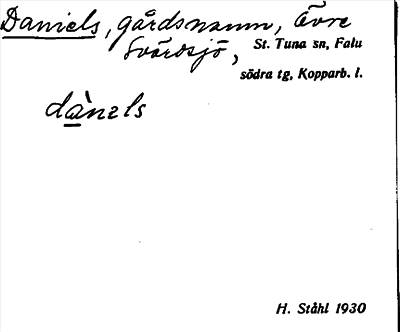 Daniels, gårdsnamn, Övre
Svärdsjö, St. Tuna sn, Falu
södra tg, Kopparb. l.
dànels
H. Ståhl 1930